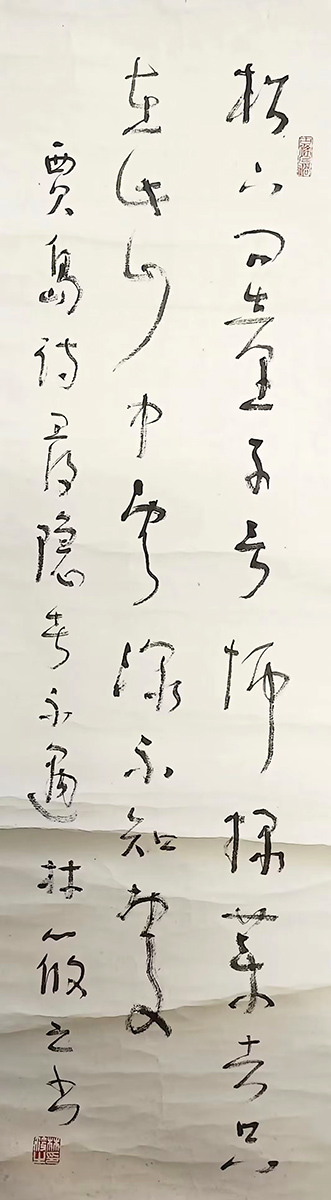 松下問童子言師採藥去只
在此山中雲深不知處
賈島詩尋隱者不遇林筱之書